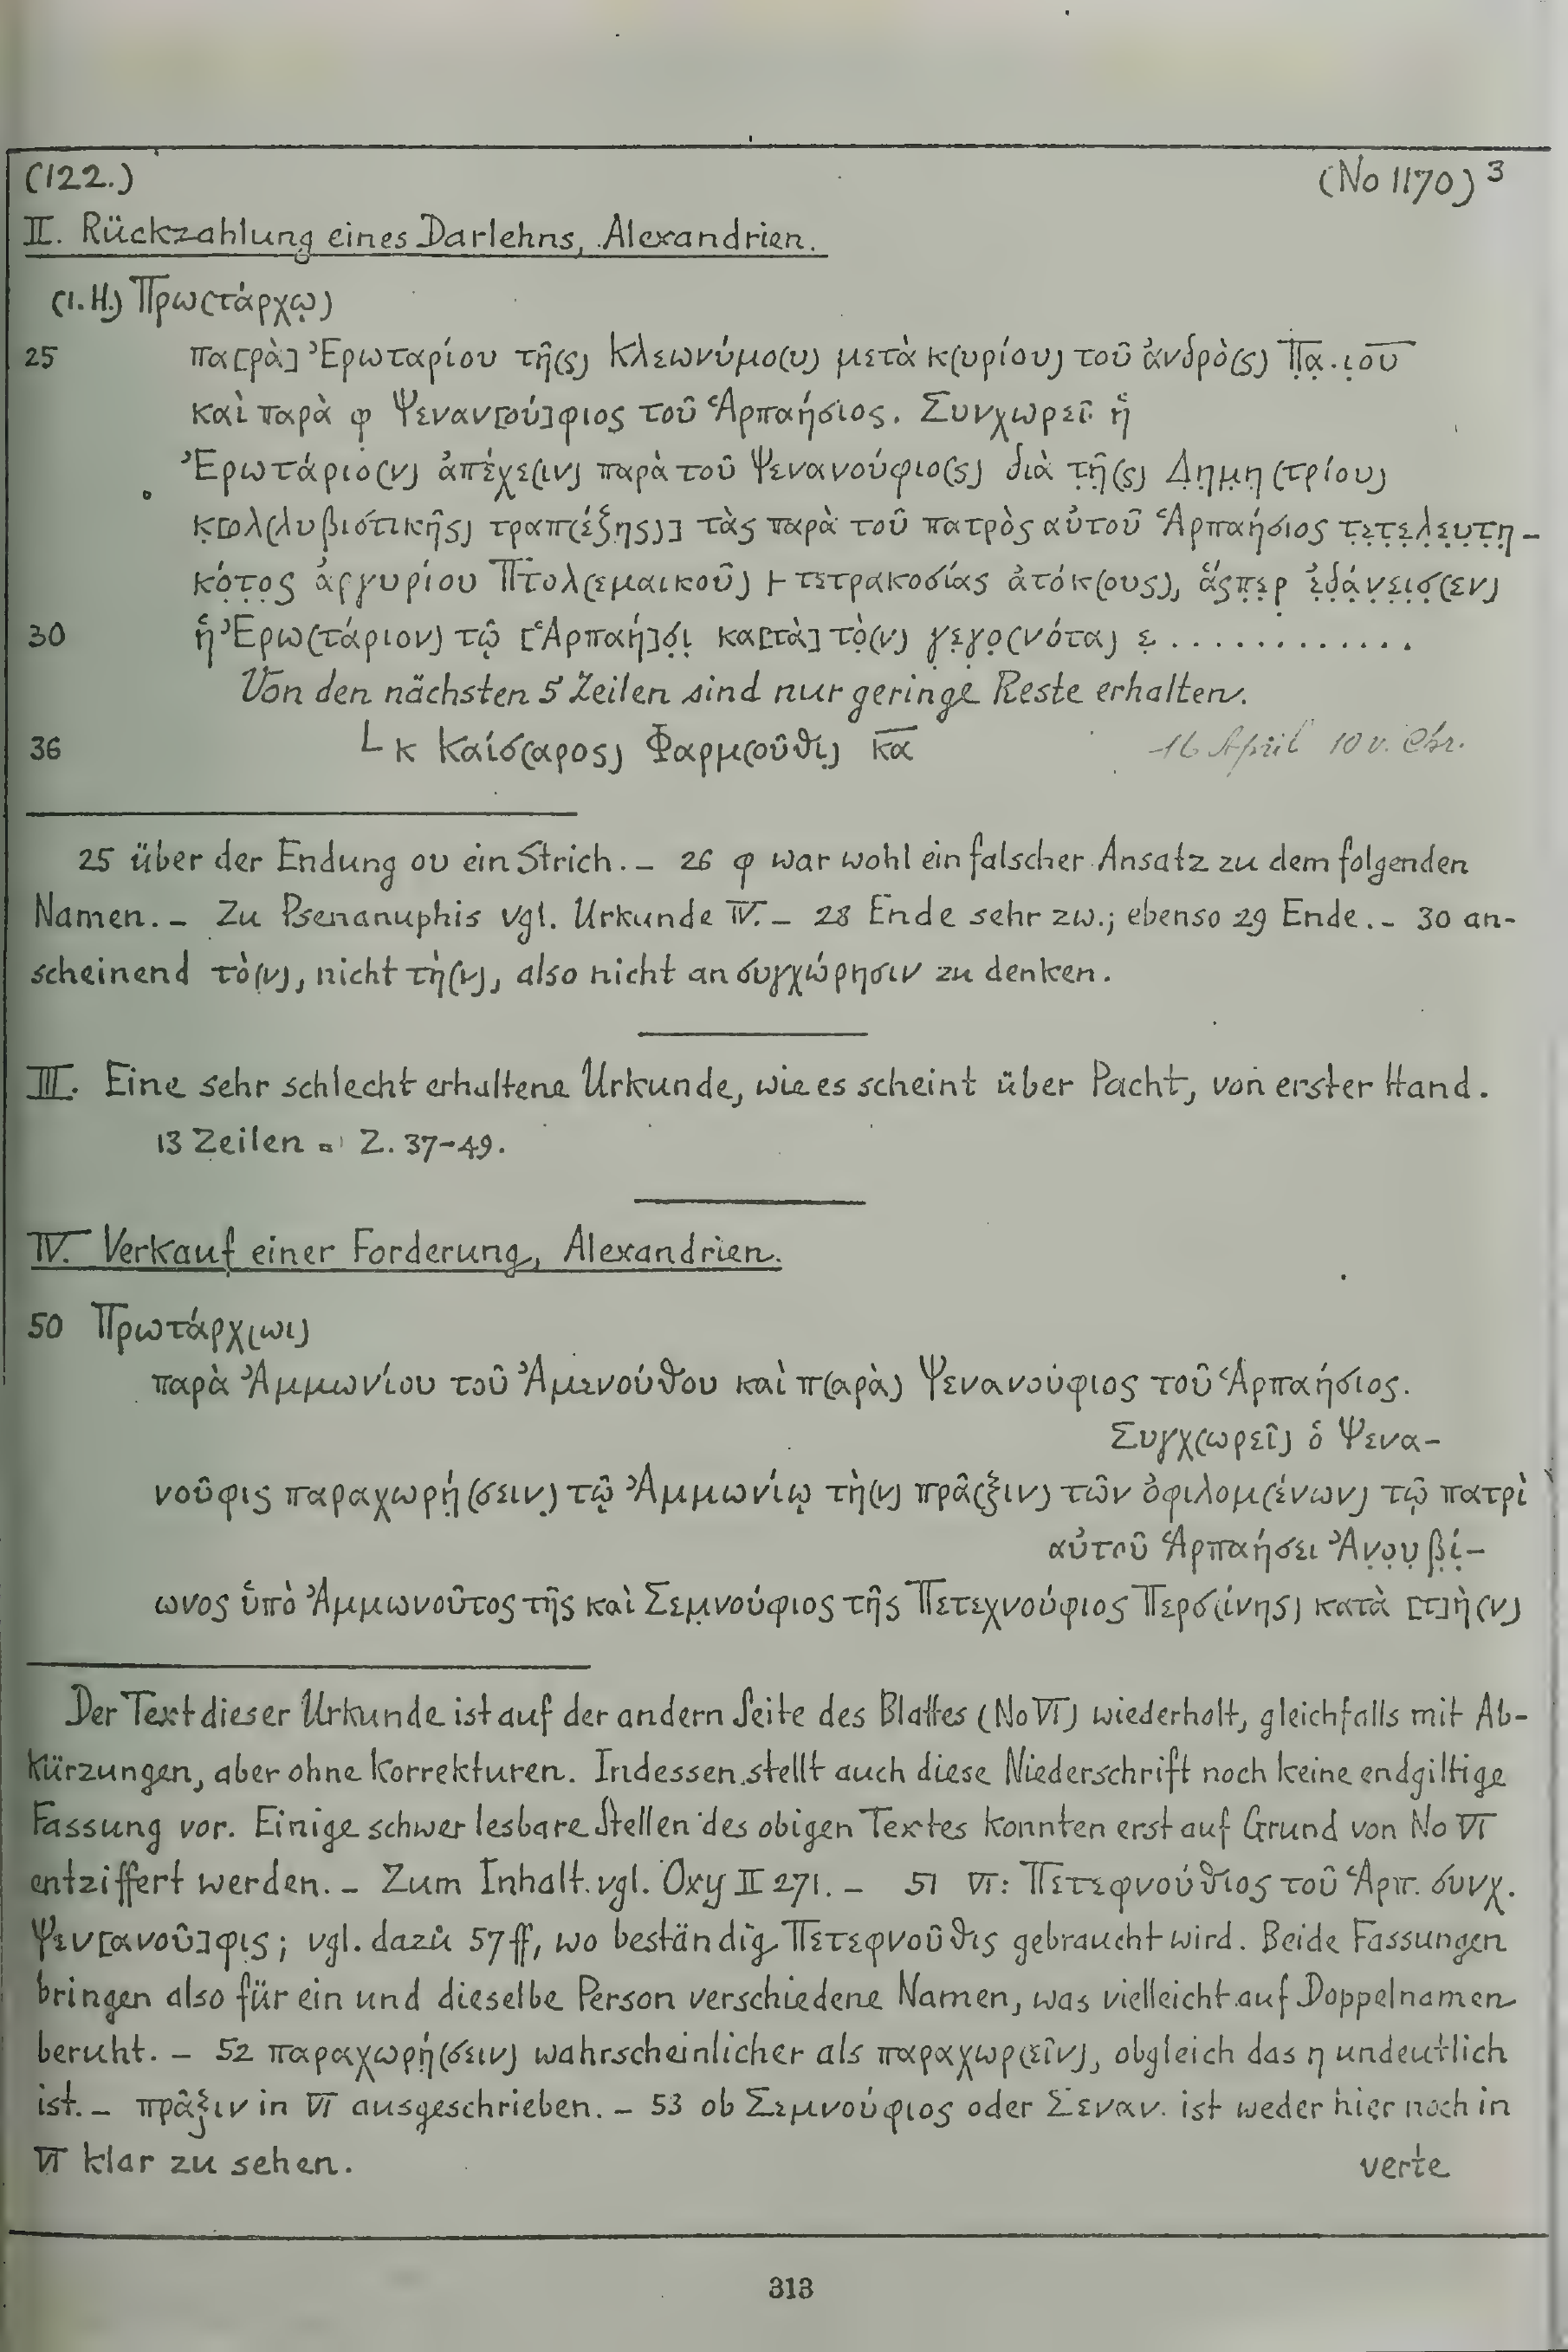 (122.) (No 1170) 3
II. Rückzahlung eines Darlehns, Alexandrien.
(1. H.) Πρω(τάρχῳ)
25 πα[ρὰ] Ἐρωταρίου τῆ(ς) Κλεωνύμο(υ) μετὰ κ(υρίου) τοῦ ἀνδρὸ(ς) Π̣α̣.ι̣ου
καὶ παρὰ φ Ψεναν[ού]φιος τοῦ Ἁρπαήσιος. Συνχωρεῖ ἡ
Ἐρωτάριο(ν) ἀπέχε(ιν) παρὰ τοῦ Ψενανούφιο(ς) διὰ τ̣ῆ̣(ς) Δ̣η̣μ̣η̣(τρίου)
κ̣[ολ(λυβιστικῆς) τραπ(έζης)] τὰς παρὰ τοῦ πατρὸς αὐτοῦ Ἁρπαήσιος τ̣ε̣τ̣ε̣λ̣ε̣υ̣τ̣η̣-
κ̣ό̣τ̣ο̣ς ἀργυρίου Πτολ(εμαικοῦ) 𐅂 τετρακοσίας ἀτόκ(ους), ἅςπ̣ε̣ρ̣ ἐ̣δ̣ά̣ν̣ε̣ι̣σ̣(εν)
30 ἡ Ἐρω(τάριον) τῷ [Ἁρπαή]σ̣ι̣ κα[τὰ] τ̣ὸ̣(ν) γ̣ε̣γ̣ο̣(νότα) ε̣ ............
Von den nächsten 5 Zeilen sind nur geringe Reste erhalten.
36 L κ Καίσ(αρος) Φαρμ(οῦθι) κ̅α̅ 16 April 10 v. Chr.
25 über der Endung ου ein Strich. – 26 φ war wohl ein falscher Ansatz zu dem folgenden
Namen. – Zu Psenanuphis vgl. Urkunde IV. – 28 Ende sehr zw.; ebenso 29 Ende. – 30 an-
scheinend τὸ(ν), nicht τὴ(ν), also nicht an συγχώρησιν zu denken.
III. Eine sehr schlecht erhaltene Urkunde, wie es scheint über Pacht, von erster Hand.
13 Zeilen = Z. 37-49.
IV. Verkauf einer Forderung, Alexandrien.
50 Πρωτάρχ(ωι)
παρὰ Ἀμμωνίου τοῦ Ἀμενούθου καὶ π(αρὰ) Ψενανούφιος τοῦ Ἁρπαήσιος.
Συγχ(ωρεῖ) ὁ Ψενα-
νοῦφις παραχωρή̣(σειν) τῷ Ἀμμωνίῳ τὴ(ν) πρᾶ(ξιν) τῶν ὀφιλομ(ένων) τῷ πατρὶ
αὐτοῦ Ἁρπαήσει Ἀν̣ο̣υ̣β̣ί̣-
ωνος ὑπὸ Ἀμμωνοῦτος τῆς καὶ Σεμ̣νούφιος τῆς Πετεχνούφιος Περσ(ίνης) κατὰ [τ]ὴ(ν)
Der Text dieser Urkunde ist auf der andern Seite des Blattes (No VI) wiederholt, gleichfalls mit Ab-
kürzungen, aber ohne Korrekturen. Indessen stellt auch diese Niederschrift noch keine endgiltige
Fassung vor. Einige schwer lesbare Stellen des obigen Textes konnten erst auf Grund von No VI
entziffert werden. – Zum Inhalt vgl. Oxy II 271. – 51 VI: Πετεφνούθιος τοῦ Ἁρπ. συνχ.
Ψεν[ανοῦ]φις; vgl. dazu 57ff, wo beständig Πετεφνοῦθις gebraucht wird. Beide Fassungen
bringen also für ein und dieselbe Person verschiedene Namen, was vielleicht auf Doppelnamen
beruht. – 52 παραχωρή̣(σειν) wahrscheinlicher als παραχωρ(εῖν), obgleich das η undeutlich
ist. – πρᾶξιν in VI ausgeschrieben. – 53 ob Σεμνούφιος oder Σεναν. ist weder hier noch in
VI klar zu sehen. verte
313